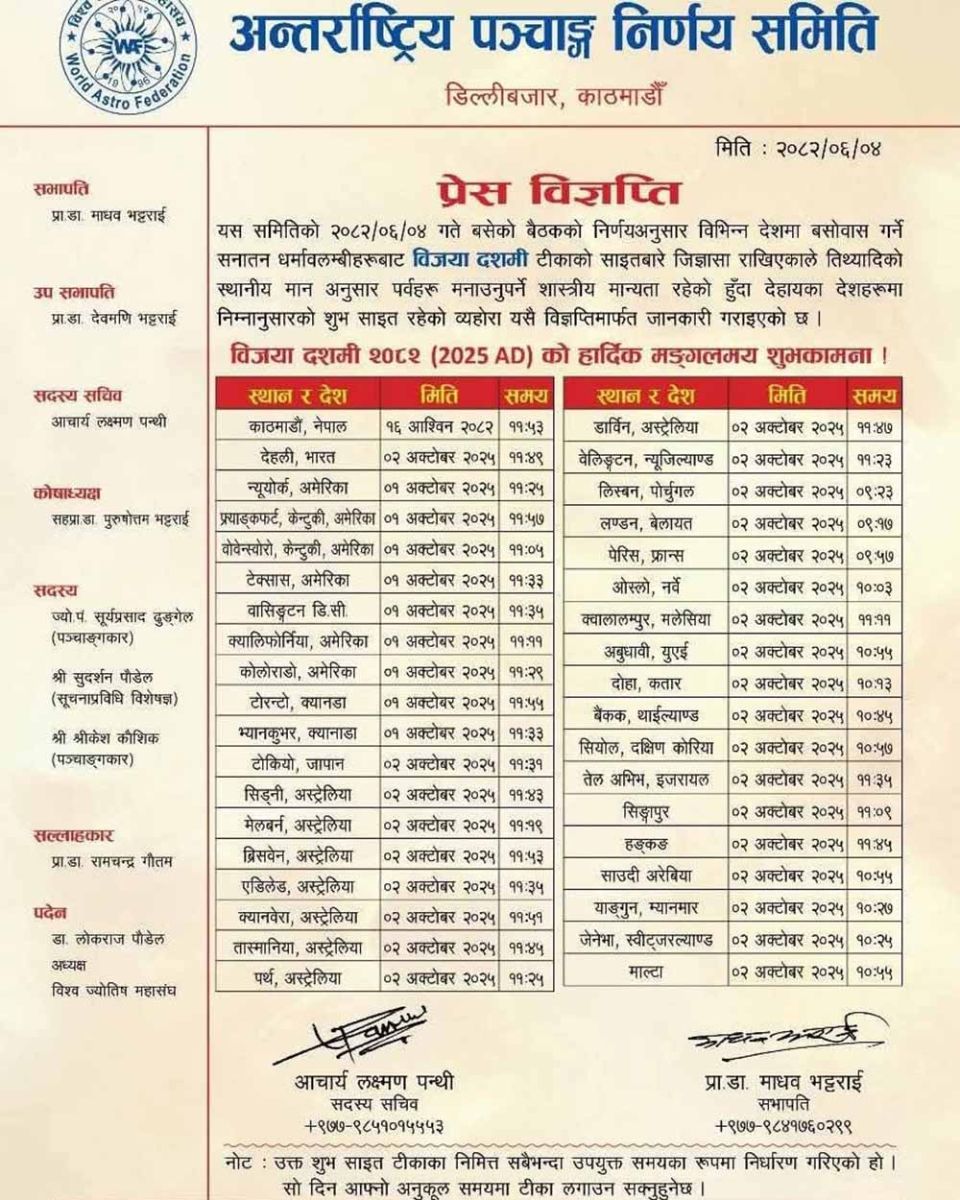 World Astro Federation
WAF
अन्तर्राष्ट्रिय पञ्चाङ्ग निर्णय समिति
डिल्लीबजार, काठमाडौँ
मिति : २०८२/०६/०४
प्रेस विज्ञप्ति
यस समितिको २०८२/०६/०४ गते बसेको बैठकको निर्णयअनुसार विभिन्न देशमा बसोवास गर्ने
सनातन धर्मावलम्बीहरूबाट विजया दशमी टीकाको साइतबारे जिज्ञासा राखिएकाले तिथ्यादिको
स्थानीय मान अनुसार पर्वहरू मनाउनुपर्ने शास्त्रीय मान्यता रहेको हुँदा देहायका देशहरूमा
निम्नानुसारको शुभ साइत रहेको व्यहोरा यसै विज्ञप्तिमार्फत जानकारी गराइएको छ ।
विजया दशमी २०८२ (2025 AD) को हार्दिक मङ्गलमय शुभकामना !
सभापति
प्रा.डा. माधव भट्टराई
उप सभापति
प्रा.डा. देवमणि भट्टराई
सदस्य सचिव
आचार्य लक्ष्मण पन्थी
कोषाध्यक्ष
सहप्रा.डा. पुरुषोत्तम भट्टराई
सदस्य
ज्यो.पं. सूर्यप्रसाद ढुङ्गेल
(पञ्चाङ्गकार)
श्री सुदर्शन पौडेल
(सूचनाप्रविधि विशेषज्ञ)
श्री श्रीकेश कौशिक
(पञ्चाङ्गकार)
सल्लाहकार
प्रा.डा. रामचन्द्र गौतम
पदेन
डा. लोकराज पौडेल
अध्यक्ष
विश्व ज्योतिष महासंघ
स्थान र देश मिति समय
काठमाडौं, नेपाल १६ आश्विन २०८२ ११:५३
देहली, भारत ०२ अक्टोबर २०२५ ११:४९
न्यूयोर्क, अमेरिका ०१ अक्टोबर २०२५ ११:२५
फ्र्याङ्कफर्ट, केन्टुकी, अमेरिका ०१ अक्टोबर २०२५ ११:५७
वोवेन्स्वोरो, केन्टुकी, अमेरिका ०१ अक्टोबर २०२५ ११:०५
टेक्सास, अमेरिका ०१ अक्टोबर २०२५ ११:३३
वासिङ्गटन डि.सी. ०१ अक्टोबर २०२५ ११:३५
क्यालिफोर्निया, अमेरिका ०१ अक्टोबर २०२५ ११:११
कोलोराडो, अमेरिका ०१ अक्टोबर २०२५ ११:२९
टोरन्टो, क्यानडा ०१ अक्टोबर २०२५ ११:५५
भ्यानकुभर, क्यानाडा ०१ अक्टोबर २०२५ ११:३३
टोकियो, जापान ०२ अक्टोबर २०२५ ११:३१
सिड्नी, अस्ट्रेलिया ०२ अक्टोबर २०२५ ११:४३
मेलबर्न, अस्ट्रेलिया ०२ अक्टोबर २०२५ ११:१९
ब्रिसवेन, अस्ट्रेलिया ०२ अक्टोबर २०२५ ११:५३
एडिलेड, अस्ट्रेलिया ०२ अक्टोबर २०२५ ११:३५
क्यानवेरा, अस्ट्रेलिया ०२ अक्टोबर २०२५ ११:५१
तास्मानिया, अस्ट्रेलिया ०२ अक्टोबर २०२५ ११:४५
पर्थ, अस्ट्रेलिया ०२ अक्टोबर २०२५ ११:२५
स्थान र देश मिति समय
डार्विन, अस्ट्रेलिया ०२ अक्टोबर २०२५ ११:४७
वेलिङ्गटन, न्यूजिल्याण्ड ०२ अक्टोबर २०२५ ११:२३
लिस्बन, पोर्चुगल ०२ अक्टोबर २०२५ ०९:२३
लण्डन, बेलायत ०२ अक्टोबर २०२५ ०९:१७
पेरिस, फ्रान्स ०२ अक्टोबर २०२५ ०९:५७
ओस्लो, नर्वे ०२ अक्टोबर २०२५ १०:०३
क्वालालम्पुर, मलेसिया ०२ अक्टोबर २०२५ ११:११
अबुधावी, युएई ०२ अक्टोबर २०२५ १०:५५
दोहा, कतार ०२ अक्टोबर २०२५ १०:१३
बैंकक, थाईल्याण्ड ०२ अक्टोबर २०२५ १०:४५
सियोल, दक्षिण कोरिया ०२ अक्टोबर २०२५ १०:५७
तेल अभिभ, इजरायल ०२ अक्टोबर २०२५ ११:३५
सिङ्गापुर ०२ अक्टोबर २०२५ ११:०९
हङ्कङ ०२ अक्टोबर २०२५ ११:४५
साउदी अरेबिया ०२ अक्टोबर २०२५ १०:५५
याङ्गुन, म्यानमार ०२ अक्टोबर २०२५ १०:२७
जेनेभा, स्वीट्जरल्याण्ड ०२ अक्टोबर २०२५ १०:२५
माल्टा ०२ अक्टोबर २०२५ १०:५५
आचार्य लक्ष्मण पन्थी
सदस्य सचिव
+९७७-९८५१०१५५५३
प्रा.डा. माधव भट्टराई
सभापति
+९७७-९८४१७६०२९९
नोट : उक्त शुभ साइत टीकाका निमित्त सबैभन्दा उपयुक्त समयका रूपमा निर्धारण गरिएको हो ।
सो दिन आफ्नो अनुकूल समयमा टीका लगाउन सक्नुहुनेछ ।